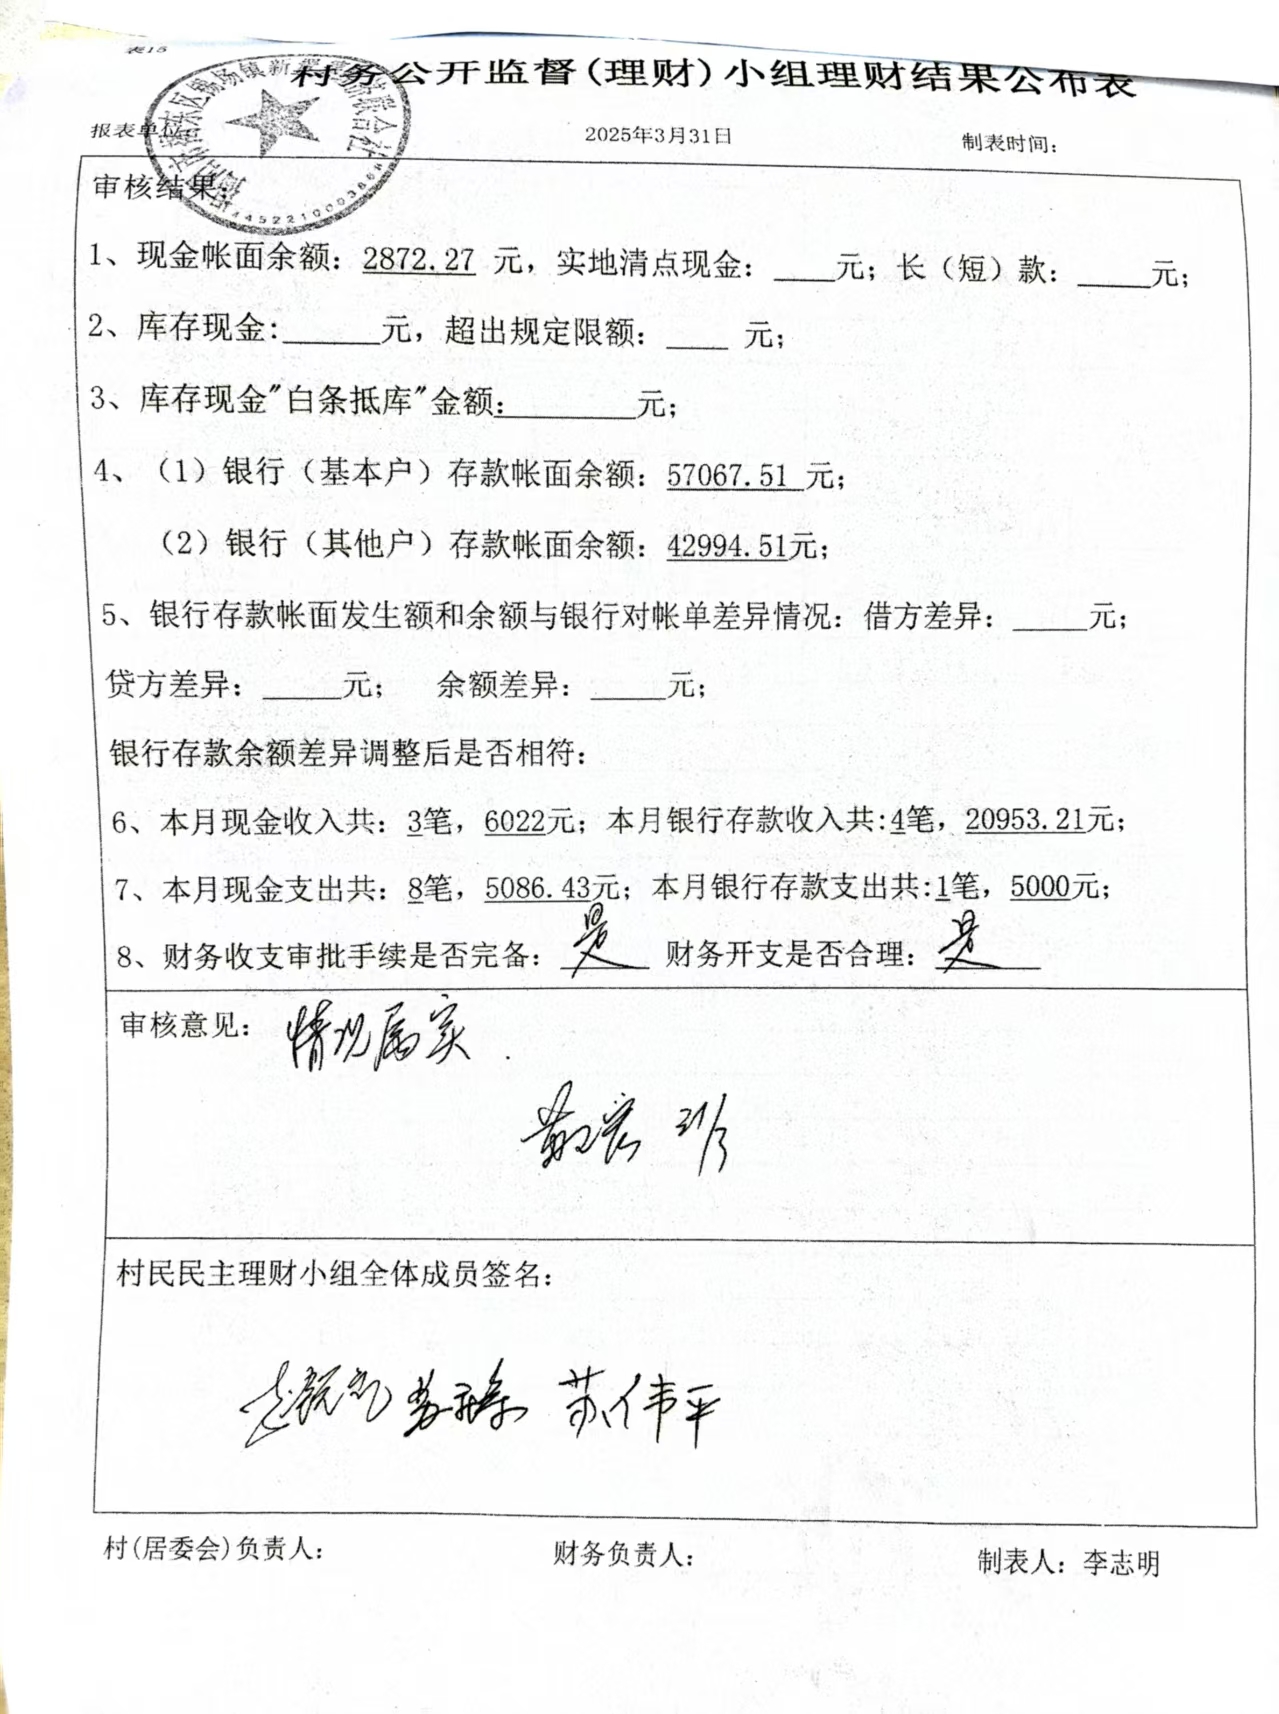 表15
村务公开监督(理财)小组理财结果公布表
报表单位: 2025年3月31日 制表时间:
4452210003868
审核结果:
1、现金帐面余额: 2872.27 元, 实地清点现金: ____元; 长（短）款: _____元;
2、库存现金:______元, 超出规定限额: ____ 元;
3、库存现金"白条抵库"金额:________元;
4、（1）银行（基本户）存款帐面余额: 57067.51 元;
（2）银行（其他户）存款帐面余额: 42994.51元;
5、银行存款帐面发生额和余额与银行对帐单差异情况: 借方差异: _____元;
贷方差异: _____元; 余额差异: _____元;
银行存款余额差异调整后是否相符:
6、本月现金收入共: 3笔, 6022元; 本月银行存款收入共:4笔, 20953.21元;
7、本月现金支出共: 8笔, 5086.43元; 本月银行存款支出共:1笔, 5000元;
8、财务收支审批手续是否完备: 是 财务开支是否合理: 是
审核意见: 情况属实.
村民民主理财小组全体成员签名:
苏伟平
村(居委会)负责人: 财务负责人: 制表人: 李志明